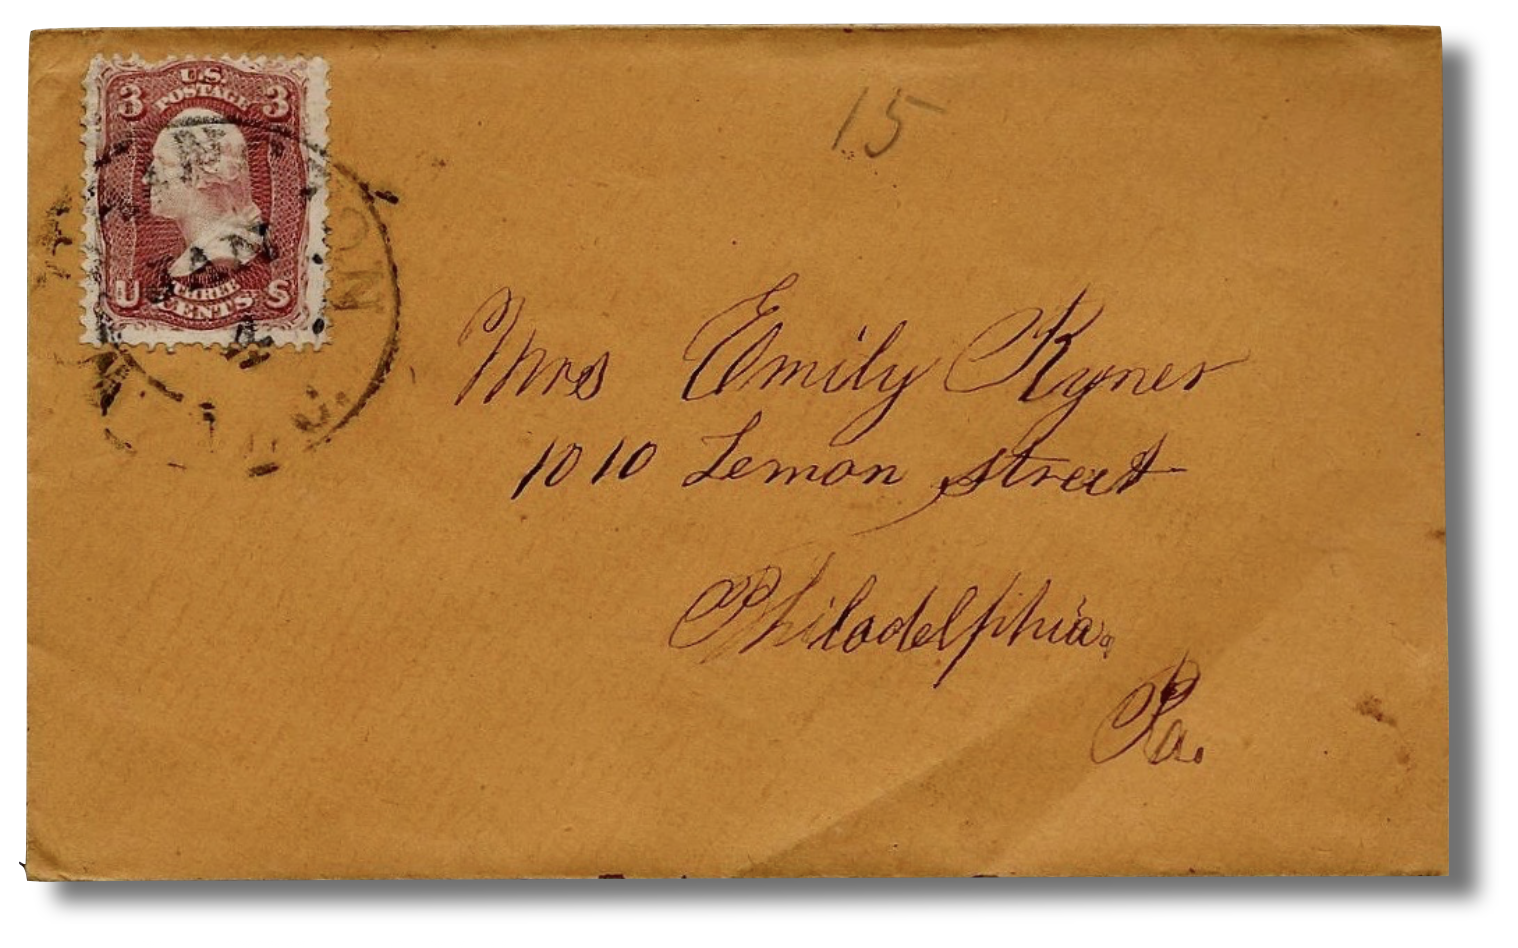 U.S.
POSTAGE
3 3
JAN
4
U THREE S
CENTS
15
Mrs Emily Kyner
1010 Lemon street
Philadelphia
Pa.